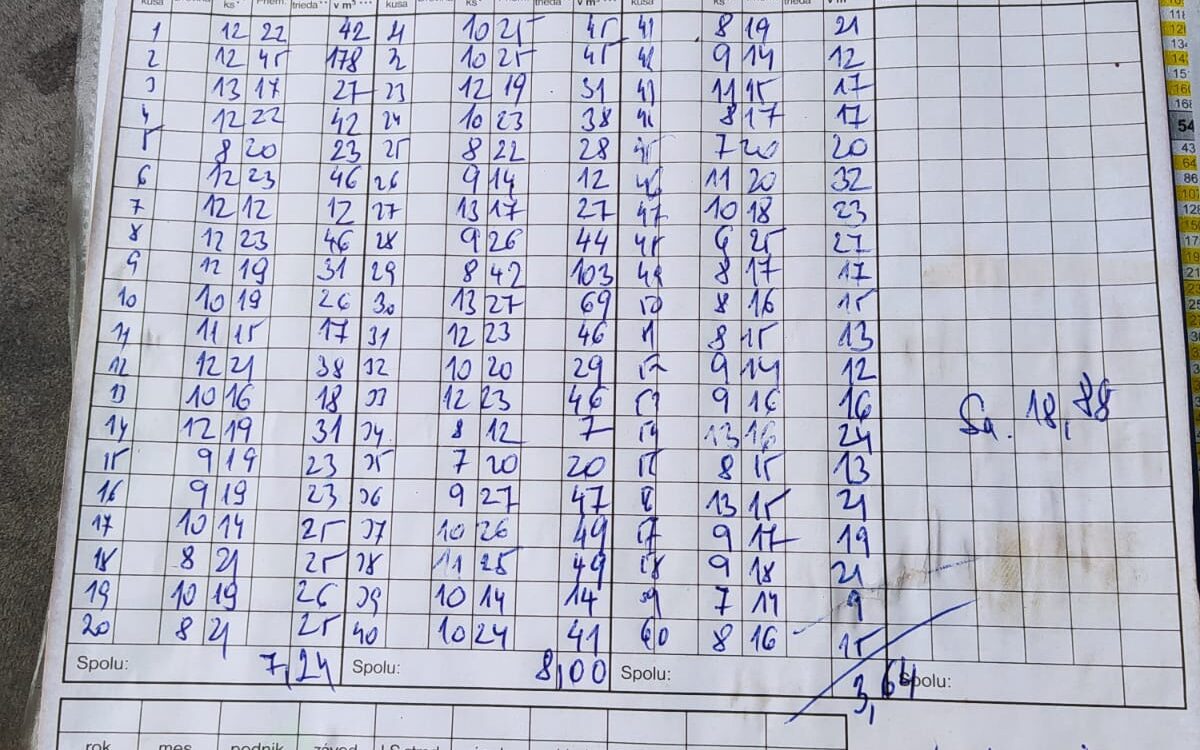 kusa ks Priem. trieda v m³ *** kusa ks trieda v m³ kusa ks trieda
1 12 22 42 21 10 25 45 41 8 19 21
2 12 45 178 22 10 25 45 42 9 14 12
3 13 17 27 23 12 19 31 43 11 15 17
4 12 22 42 24 10 23 38 44 8 17 17
5 8 20 23 25 8 22 28 45 7 20 20
6 12 23 46 26 9 14 12 46 11 20 32
7 12 12 12 27 13 17 27 47 10 18 23
8 12 23 46 28 9 26 44 48 6 25 27
9 12 19 31 29 8 42 103 49 8 17 17
10 10 19 26 30 13 27 69 50 8 16 15
11 11 15 17 31 12 23 46 51 8 15 13
12 12 21 38 32 10 20 29 52 9 14 12
13 10 16 18 33 12 23 46 53 9 16 16
14 12 19 31 34 8 12 7 54 13 16 24
15 9 19 23 35 7 20 20 55 8 15 13
16 9 19 23 36 9 27 47 56 13 15 21
17 10 14 25 37 10 26 49 57 9 17 19
18 8 21 25 38 11 25 49 58 9 18 21
19 10 19 26 39 10 14 14 59 7 14 9
20 8 21 25 40 10 24 41 60 8 16 15
Sa. 18,88
Spolu: 7,24 Spolu: 8,00 Spolu: 3,64 Spolu:
rok mes. podnik závod